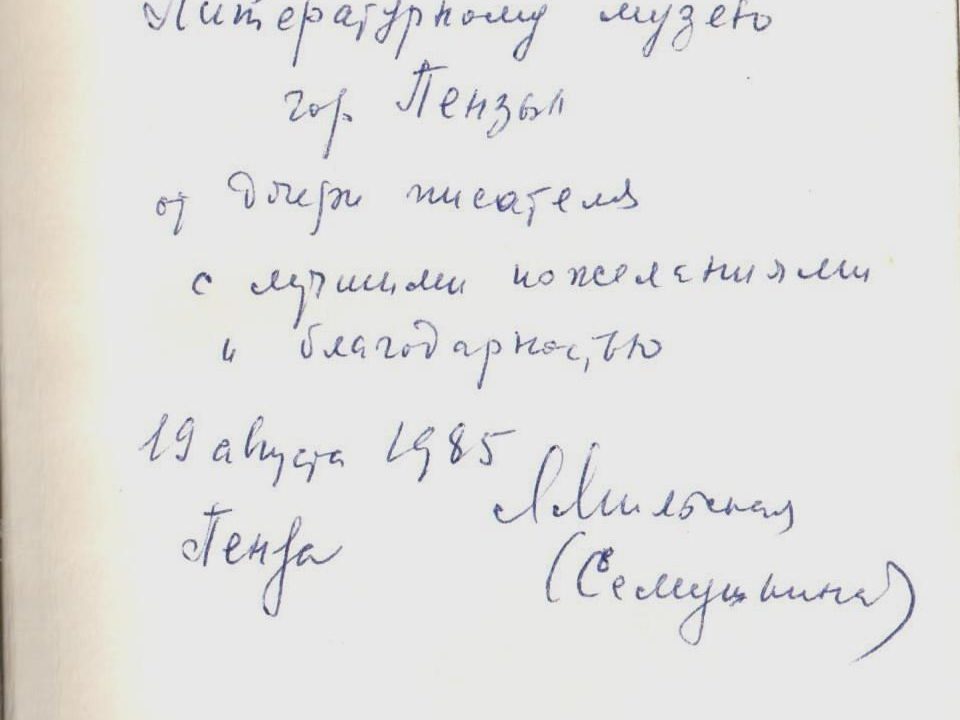 Литературному музею
гор Пензы
от дочери писателя
с лучшими пожеланиями
и благодарностью
19 августа 1985
Пенза
ЛМильская
(Семушкина)